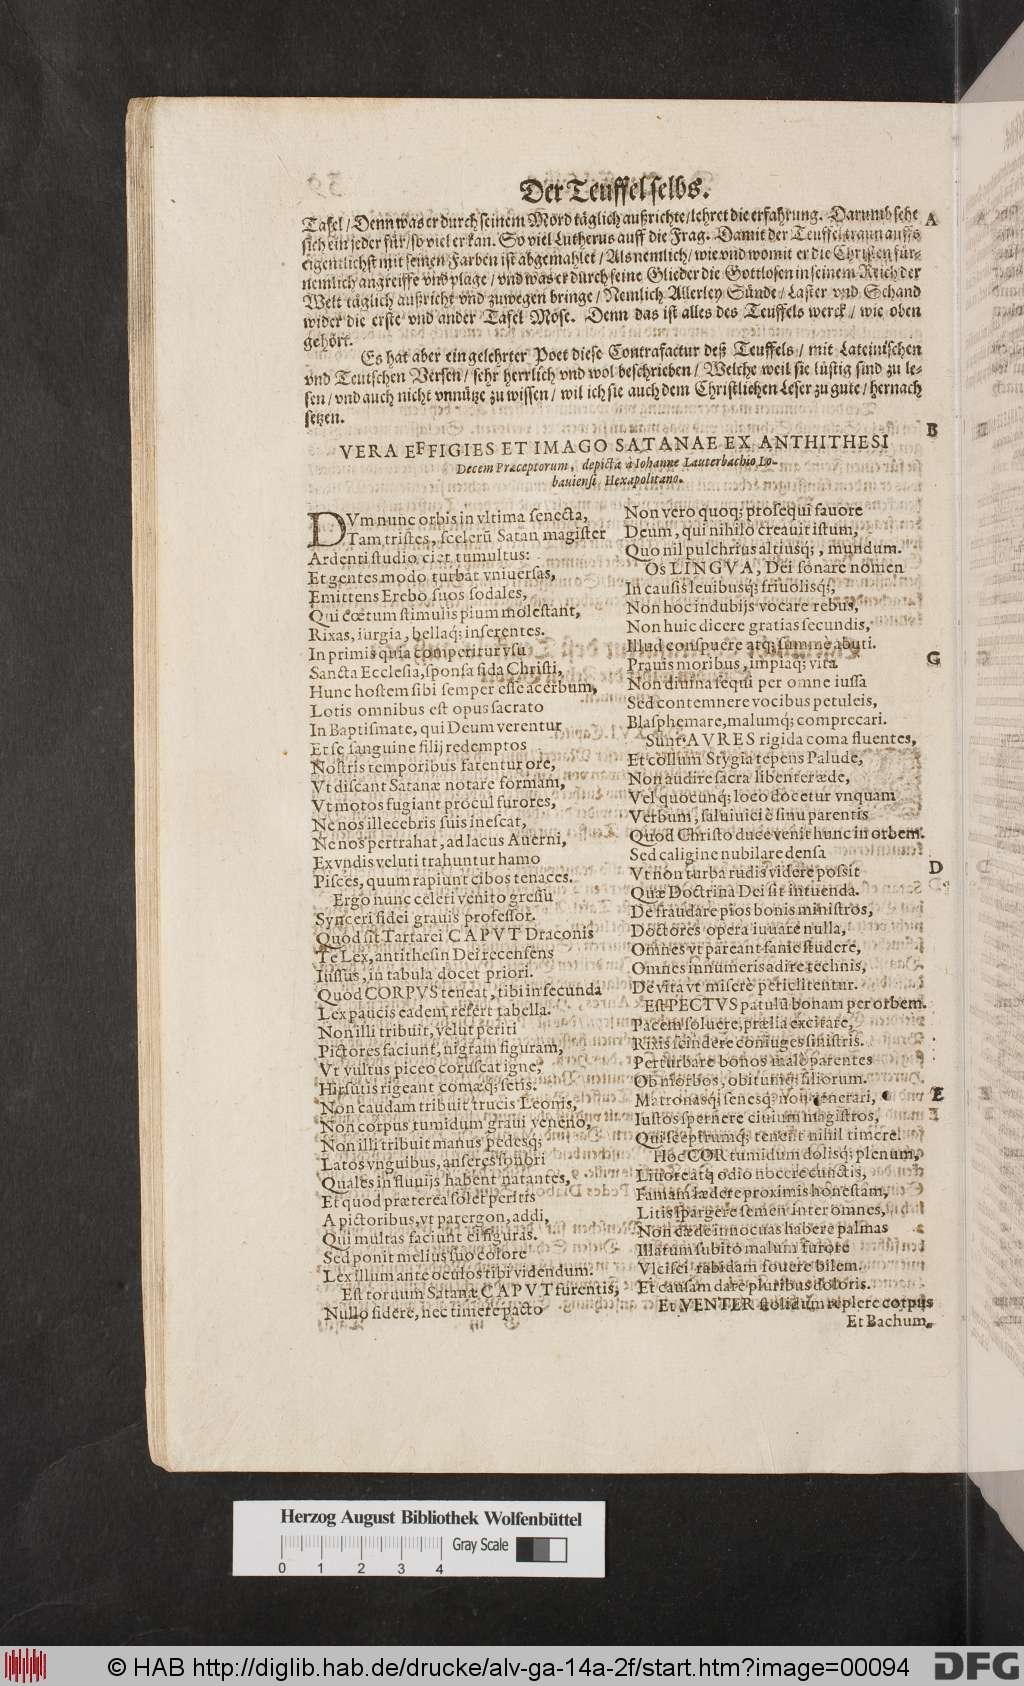 Der Teuffel selbs.
Tafel / Denn was er durch seinem Mord täglich außrichte / lehret die erfahrung. Darumb sehe
sich ein jeder für / so viel er kan. So viel Lutherus auff die Frag. Damit der Teuffel traun auffs
eigentlichst mit seinen Farben ist abgemahlet / Als nemlich / wie vnd womit er die Christen für-
nemlich angreiffe vnd plage / vnd was er durch seine Glieder die Gottlosen in seinem Reich der
Welt täglich außricht vnd zuwegen bringe / Nemlich Allerley Sünde / Laster vnd Schand
wider die erste vnd ander Tafel Mose. Denn das ist alles des Teuffels werck / wie oben
gehört.
Es hat aber ein gelehrter Poet diese Contrafactur deß Teuffels / mit Lateinischen
vnd Teutschen Versen / sehr herrlich vnd wol beschrieben / Welche weil sie lüstig sind zu le-
sen / vnd auch nicht vnnütze zu wissen / wil ich sie auch dem Christlichen Leser zu gute / hernach
setzen.
A
B
G
D
E
VERA EFFIGIES ET IMAGO SATANAE EX ANTHITHESI
Decem Præceptorum, depicta à Iohanne Lauterbachio Lo-
bauiensi, Hexapolitano.
DVm nunc orbis in vltima senecta,
Tam tristes, scelerũ Satan magister
Ardenti studio ciet tumultus:
Et gentes modo turbat vniuersas,
Emittens Erebo suos sodales,
Qui cœtum stimulis pium molestant,
Rixas, iurgia, bellaq; inserentes.
In primis quia comperitur vsu
Sancta Ecclesia, sponsa fida Christi,
Hunc hostem sibi semper esse acerbum,
Lotis omnibus est opus sacrato
In Baptismate, qui Deum verentur
Et se sanguine filij redemptos
Nostris temporibus fatentur ore,
Vt discant Satanæ notare formam,
Vt motos fugiant procul furores,
Ne nos illecebris suis inescat,
Ne nos pertrahat, ad lacus Auerni,
Ex vndis veluti trahuntur hamo
Pisces, quum rapiunt cibos tenaces.
Ergo nunc celeri venito gressu
Synceri fidei grauis professor.
Quod sit Tartarei CAPVT Draconis
Te Lex, antithesin Dei recensens
Iussus, in tabula docet priori.
Quod CORPVS teneat, tibi in secunda
Lex paucis eadem refert tabella.
Non illi tribuit, velut periti
Pictores faciunt, nigram figuram,
Vt vultus piceo coruscat igne,
Hirsutis rigeant comæq; setis.
Non caudam tribuit trucis Leonis,
Non corpus tumidum graui veneno,
Non illi tribuit manus pedesq;
Latos vnguibus, anseres sonori
Quales in fluuijs habent natantes,
Et quod præterea solet peritis
A pictoribus, vt parergon, addi,
Qui multas faciunt ei figuras.
Sed ponit melius suo colore
Lex illum ante oculos tibi videndum.
Est toruum Satanæ CAPVT furentis,
Nullo sidere, nec timere pacto
Non vero quoq; prosequi fauore
Deum, qui nihilo creauit istum,
Quo nil pulchrius altiusq;, mundum.
Os LINGVA, Dei sonare nomen
In causis leuibusq; friuolisq;,
Non hoc indubijs vocare rebus,
Non huic dicere gratias secundis,
Illud conspuere atq; summe abuti.
Prauis moribus, impiaq; vita
Non diuina sequi per omne iussa
Sed contemnere vocibus petuleis,
Blasphemare, malumq; comprecari.
Sunt AVRES rigida coma fluentes,
Et collum Stygia tepens Palude,
Non audire sacra libenter æde,
Vel quocunq; loco docetur vnquam
Verbum, saluiuici è sinu parentis
Quod Christo duce venit hunc in orbem.
Sed caligine nubilare densa
Vt non turba rudis videre possit
Quæ Doctrina Dei sit intuenda.
Defraudare pios bonis ministros,
Doctores opera iuuare nulla,
Omnes vt pareant sanie studere,
Omnes innumeris adire technis,
De vita vt misere periclitentur.
Est PECTVS patulũ bonam per orbem.
Pacem soluere, prælia excitare,
Rixis scindere coniuges sinistris.
Perturbare bonos male parentes
Ob morbos, obitumq; filiorum.
Matronasq; senesq; non venerari,
Iustos spernere ciuium magistros,
Qui sceptrumq; tenent nihil timere.
Hoc COR tumidum dolisq; plenum,
Liuoreatq odio nocere cunctis,
Famam lædere proximis honestam,
Litis spargere semen inter omnes,
Non cæde innocuas habere palmas
Illatum subito malum furore
Vlcisci rabidam fouere bilem.
Et causam dare pluribus doloris.
Et VENTER stolidum replere corpus
Et Bachum,
Herzog August Bibliothek Wolfenbüttel
Gray Scale
0 1 2 3 4
© HAB http://diglib.hab.de/drucke/alv-ga-14a-2f/start.htm?image=00094
DFG